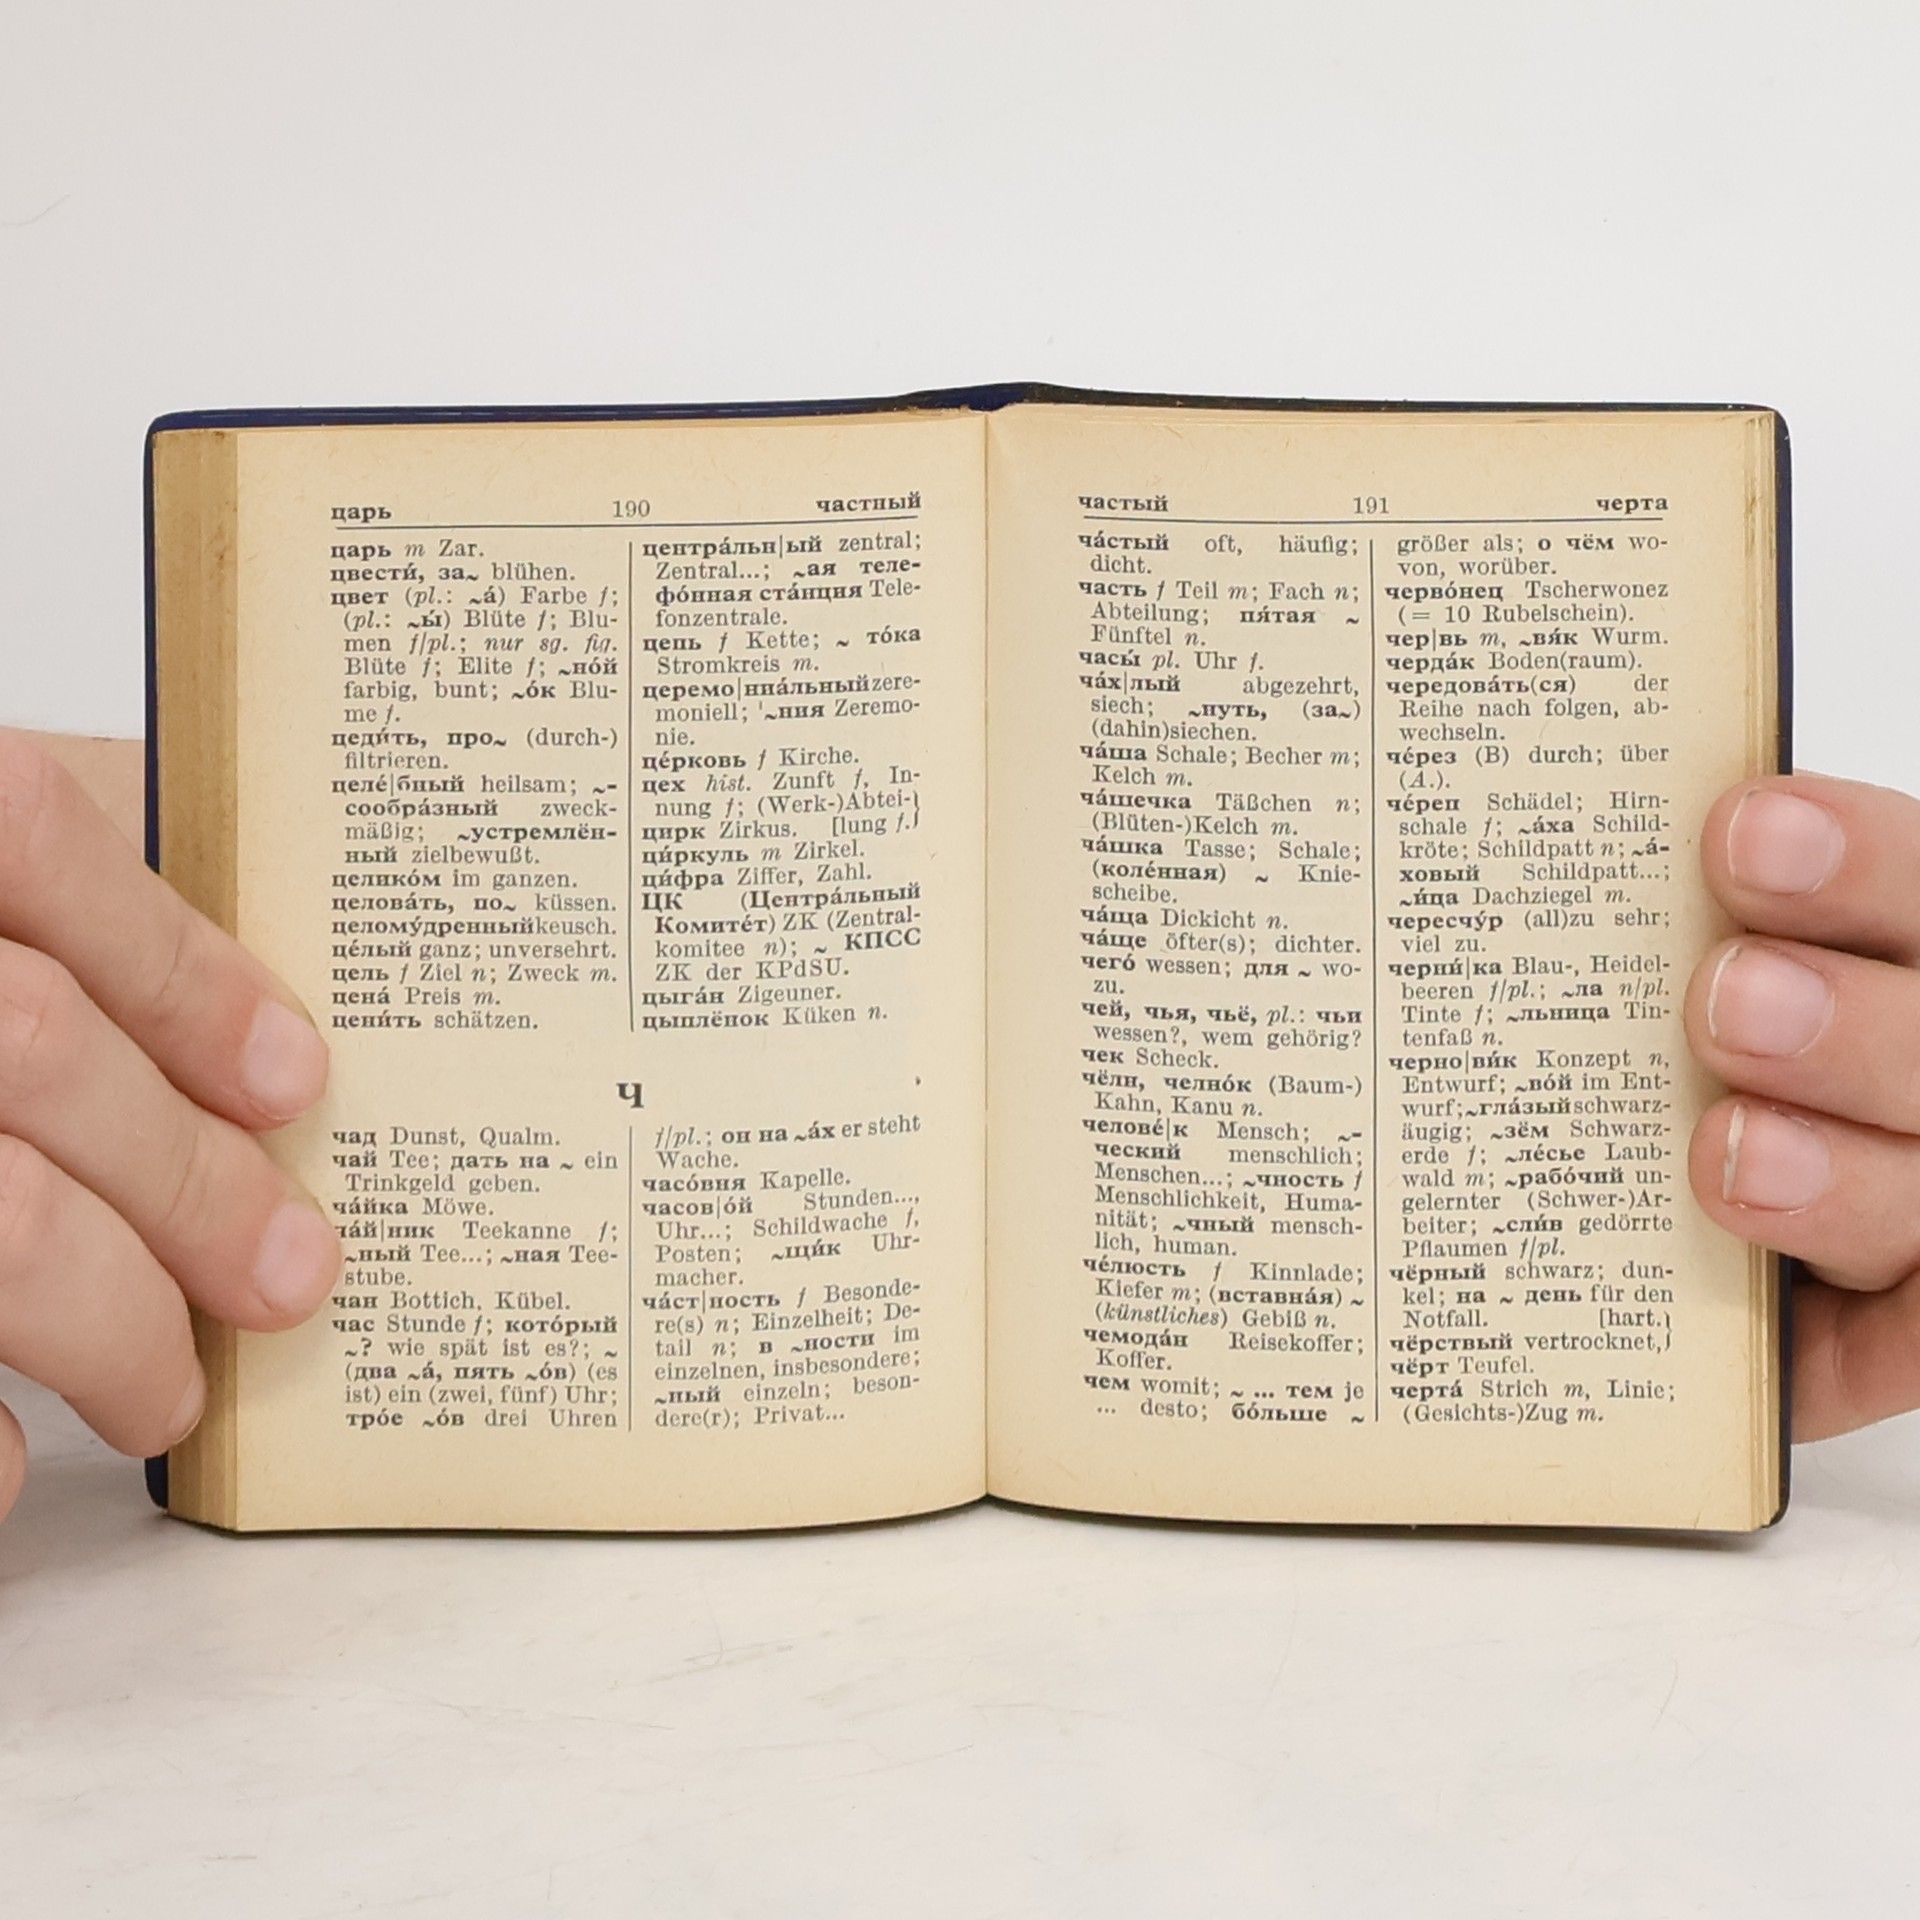 царь 190 частный
царь m Zar.
цвести́, за~ blühen.
цвет (pl.: ~а́) Farbe f;
(pl.: ~ы́) Blüte f; Blu-
men f/pl.; nur sg. fig.
Blüte f; Elite f; ~но́й
farbig, bunt; ~о́к Blu-
me f.
цеди́ть, про~ (durch-)
filtrieren.
целе́|бный heilsam; ~-
сообра́зный zweck-
mäßig; ~устремлён-
ный zielbewußt.
целико́м im ganzen.
целова́ть, по~ küssen.
целому́дренный keusch.
це́лый ganz; unversehrt.
цель f Ziel n; Zweck m.
цена́ Preis m.
цени́ть schätzen.
центра́льн|ый zentral;
Zentral...; ~ая теле-
фо́нная ста́нция Tele-
fonzentrale.
цепь f Kette; ~ то́ка
Stromkreis m.
церемо|ниа́льный zere-
moniell; ~ния Zeremo-
nie.
це́рковь f Kirche.
цех hist. Zunft f, In-
nung f; (Werk-)Abtei-}
цирк Zirkus. [lung f.}
ци́ркуль m Zirkel.
ци́фра Ziffer, Zahl.
ЦК (Центра́льный
Комите́т) ZK (Zentral-
komitee n); ~ КПСС
ZK der KPdSU.
цыга́н Zigeuner.
цыплёнок Küken n.
Ч
чад Dunst, Qualm.
чай Tee; дать на ~ ein
Trinkgeld geben.
ча́йка Möwe.
ча́й|ник Teekanne f;
~ный Tee...; ~ная Tee-
stube.
чан Bottich, Kübel.
час Stunde f; кото́рый
~? wie spät ist es?; ~
(два ~а́, пять ~о́в) (es
ist) ein (zwei, fünf) Uhr;
тро́е ~о́в drei Uhren
f/pl.; он на ~а́х er steht
Wache.
часо́вня Kapelle.
часов|о́й Stunden...,
Uhr...; Schildwache f,
Posten; ~щи́к Uhr-
macher.
ча́ст|ность f Besonde-
re(s) n; Einzelheit; De-
tail n; в ~ности im
einzelnen, insbesondere;
~ный einzeln; beson-
dere(r); Privat...
частый 191 черта
ча́стый oft, häufig;
dicht.
часть f Teil m; Fach n;
Abteilung; пя́тая ~
Fünftel n.
часы́ pl. Uhr f.
ча́х|лый abgezehrt,
siech; ~нуть, (за~)
(dahin)siechen.
ча́ша Schale; Becher m;
Kelch m.
ча́шечка Täßchen n;
(Blüten-)Kelch m.
ча́шка Tasse; Schale;
(коле́нная) ~ Knie-
scheibe.
ча́ща Dickicht n.
ча́ще öfter(s); dichter.
чего́ wessen; для ~ wo-
zu.
чей, чья, чьё, pl.: чьи
wessen?, wem gehörig?
чек Scheck.
чёлн, челно́к (Baum-)
Kahn, Kanu n.
челове́|к Mensch; ~-
ческий menschlich;
Menschen...; ~чность f
Menschlichkeit, Huma-
nität; ~чный mensch-
lich, human.
че́люсть f Kinnlade;
Kiefer m; (вставна́я) ~
(künstliches) Gebiß n.
чемода́н Reisekoffer;
Koffer.
чем womit; ~ ... тем je
... desto; бо́льше ~
größer als; о чём wo-
von, worüber.
черво́нец Tscherwonez
(= 10 Rubelschein).
чер|вь m, ~вя́к Wurm.
черда́к Boden(raum).
чередова́ть(ся) der
Reihe nach folgen, ab-
wechseln.
че́рез (В) durch; über
(A.).
че́реп Schädel; Hirn-
schale f; ~а́ха Schild-
kröte; Schildpatt n; ~а́-
ховый Schildpatt...;
~и́ца Dachziegel m.
чересчу́р (all)zu sehr;
viel zu.
черни́|ка Blau-, Heidel-
beeren f/pl.; ~ла n/pl.
Tinte f; ~льница Tin-
tenfaß n.
черно|ви́к Konzept n,
Entwurf; ~во́й im Ent-
wurf; ~гла́зый schwarz-
äugig; ~зём Schwarz-
erde f; ~ле́сье Laub-
wald m; ~рабо́чий un-
gelernter (Schwer-)Ar-
beiter; ~сли́в gedörrte
Pflaumen f/pl.
чёрный schwarz; dun-
kel; на ~ день für den
Notfall. [hart.}
чёрствый vertrocknet,}
чёрт Teufel.
черта́ Strich m, Linie;
(Gesichts-)Zug m.